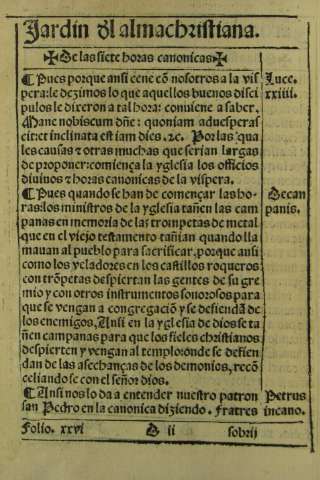 Jardin dl almachristiana.
✠De las siete horas canonicas✠
¶Pues porque ansi ceno cõ nosotros a la vis
pera: le dezimos lo que aquellos buenos disci
pulos le dixeron a tal hora: conuiene a saber.
Mane nobiscum dñe: quoniam aduesperas
cit: et inclinata est iam dies. ⁊c. Por las qua
les causas ⁊ otras muchas que serian largas
de proponer: comiença la yglesia los officios
diuinos ⁊ horas canonicas de la vispera.
¶Pues quando se han de començar las ho-
ras: los ministros de la yglesia tañen las cam
panas en memoria de las trompetas de metal
que en el viejo testamento tañian quando lla
mauan al pueblo para sacrificar, porque ansi
como los veladores en los castillos roqueros
con trõpetas despiertan las gentes de su gre
mio y con otros instrumentos sonorosos para
que se vengan a congregaciõ y se defiendã de
los enemigos, Ansi en la yglesia de dios se ta
ñen campanas para que los fieles christianos
despierten y vengan al templo: onde se defien
dan de las asechanças de los demonios, recõ
celiando se con el señor dios.
¶Ansi nos lo da a entender nuestro patron
san Pedro en la canonica diziendo. Fratres
Luce.
xxiiii.
De cam
panis.
Petrus
in cano.
Folio. xxvi D ii sobrij